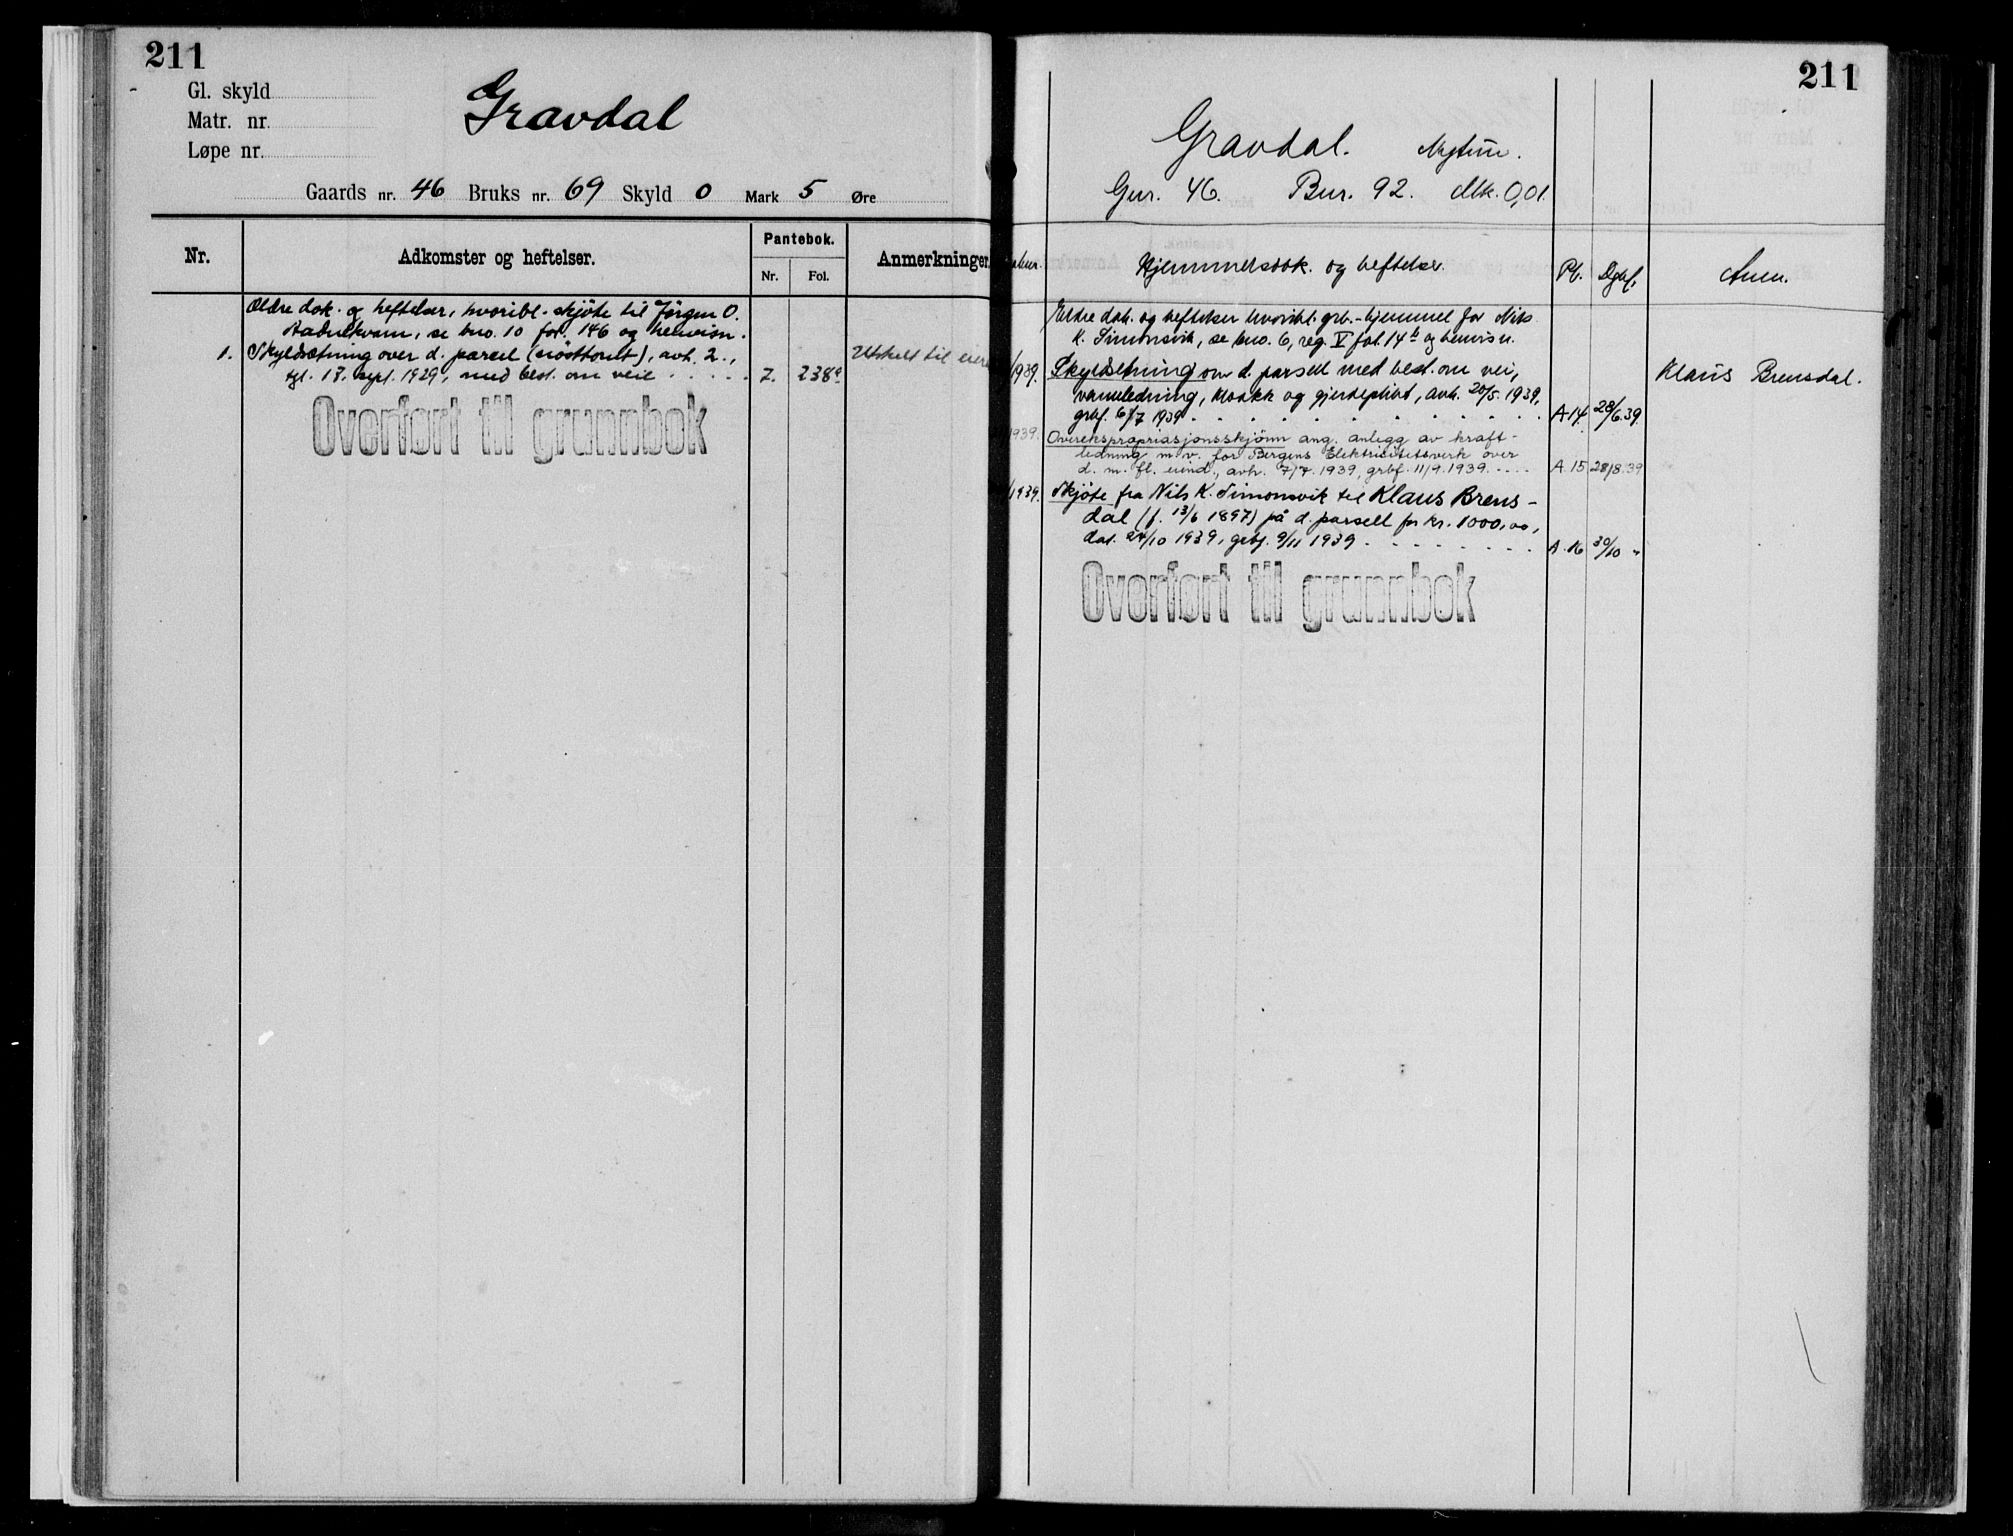 211
Gl. skyld
Matr. nr.
Løpe nr.
Gravdal
Gaards nr. 46 Bruks nr. 69 Skyld 0 Mark 5 Øre
Nr.
Adkomster og heftelser.
Pantebok.
Nr.
Fol.
Anmerkninger
Ældre dok. og heftelser, hvoribl. skjöte til Jörgen O.
se bno. 10 fol. 146 og henvisn.
1. Skyldsætning over d. parcel (nösttomt), avh. 2.,
tgl. 13. sept. 1929, med best. om veie 7. 238a
Utskilt til
Overført til grunnbok
211
Gravdal.
Gnr. 46. Bnr. 92. Mk. 0,01
Hjemmelsdok. og heftelser.
Pb.
Dgbf.
Anm.
Eldre dok. og heftelser hvoribl. grb.-hjemmel for Nils
K. Simonsvik, se bno. 6, reg. V fol. 14b og henvisn.
1939. Skyldsetning over d. parsell med best. om vei,
vannledning, kloakk og gjerdeplikt, avh. 20/5 1939,
grbf. 6/7 1939 A 14. 28/6.39.
Klaus Brensdal.
1939. Overekspropriasjonsskjönn ang. anlegg av kraft-
ledning m.v. for Bergens Elektricitetsverk over
d. m. fl. eiend., avh. 7/7. 1939, grbf. 11/9. 1939. A. 15 28/8.39
1939. Skjöte fra Nils K. Simonsvik til Klaus Brens-
dal (f. 13/6 1897) på d. parsell for kr. 1000,00,
dat. 24/10 1939, grbf. 9/11 1939 A. 16 30/10 "
Overført til grunnbok